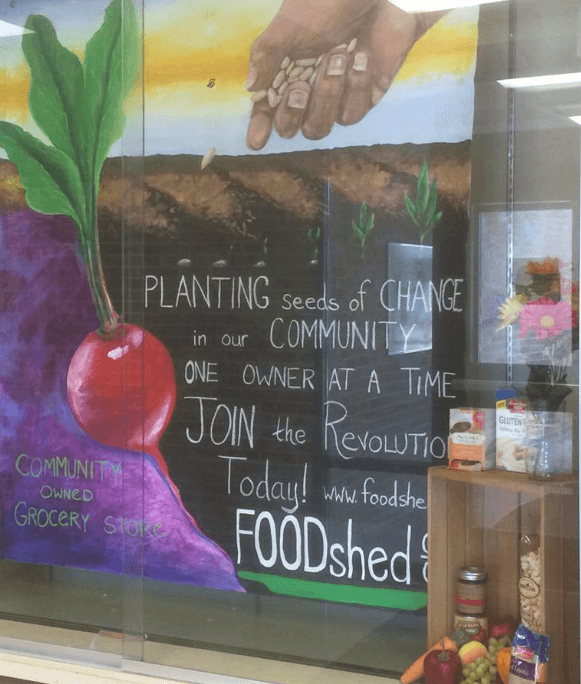 PLANTING seeds of CHANGE
in our COMMUNITY
ONE OWNER AT A TIME
JOIN the REVOLUTIO
Today! www.foodshe
FOODshed
COMMUNITY
OWNED
GROCERY STORE
GLUTEN